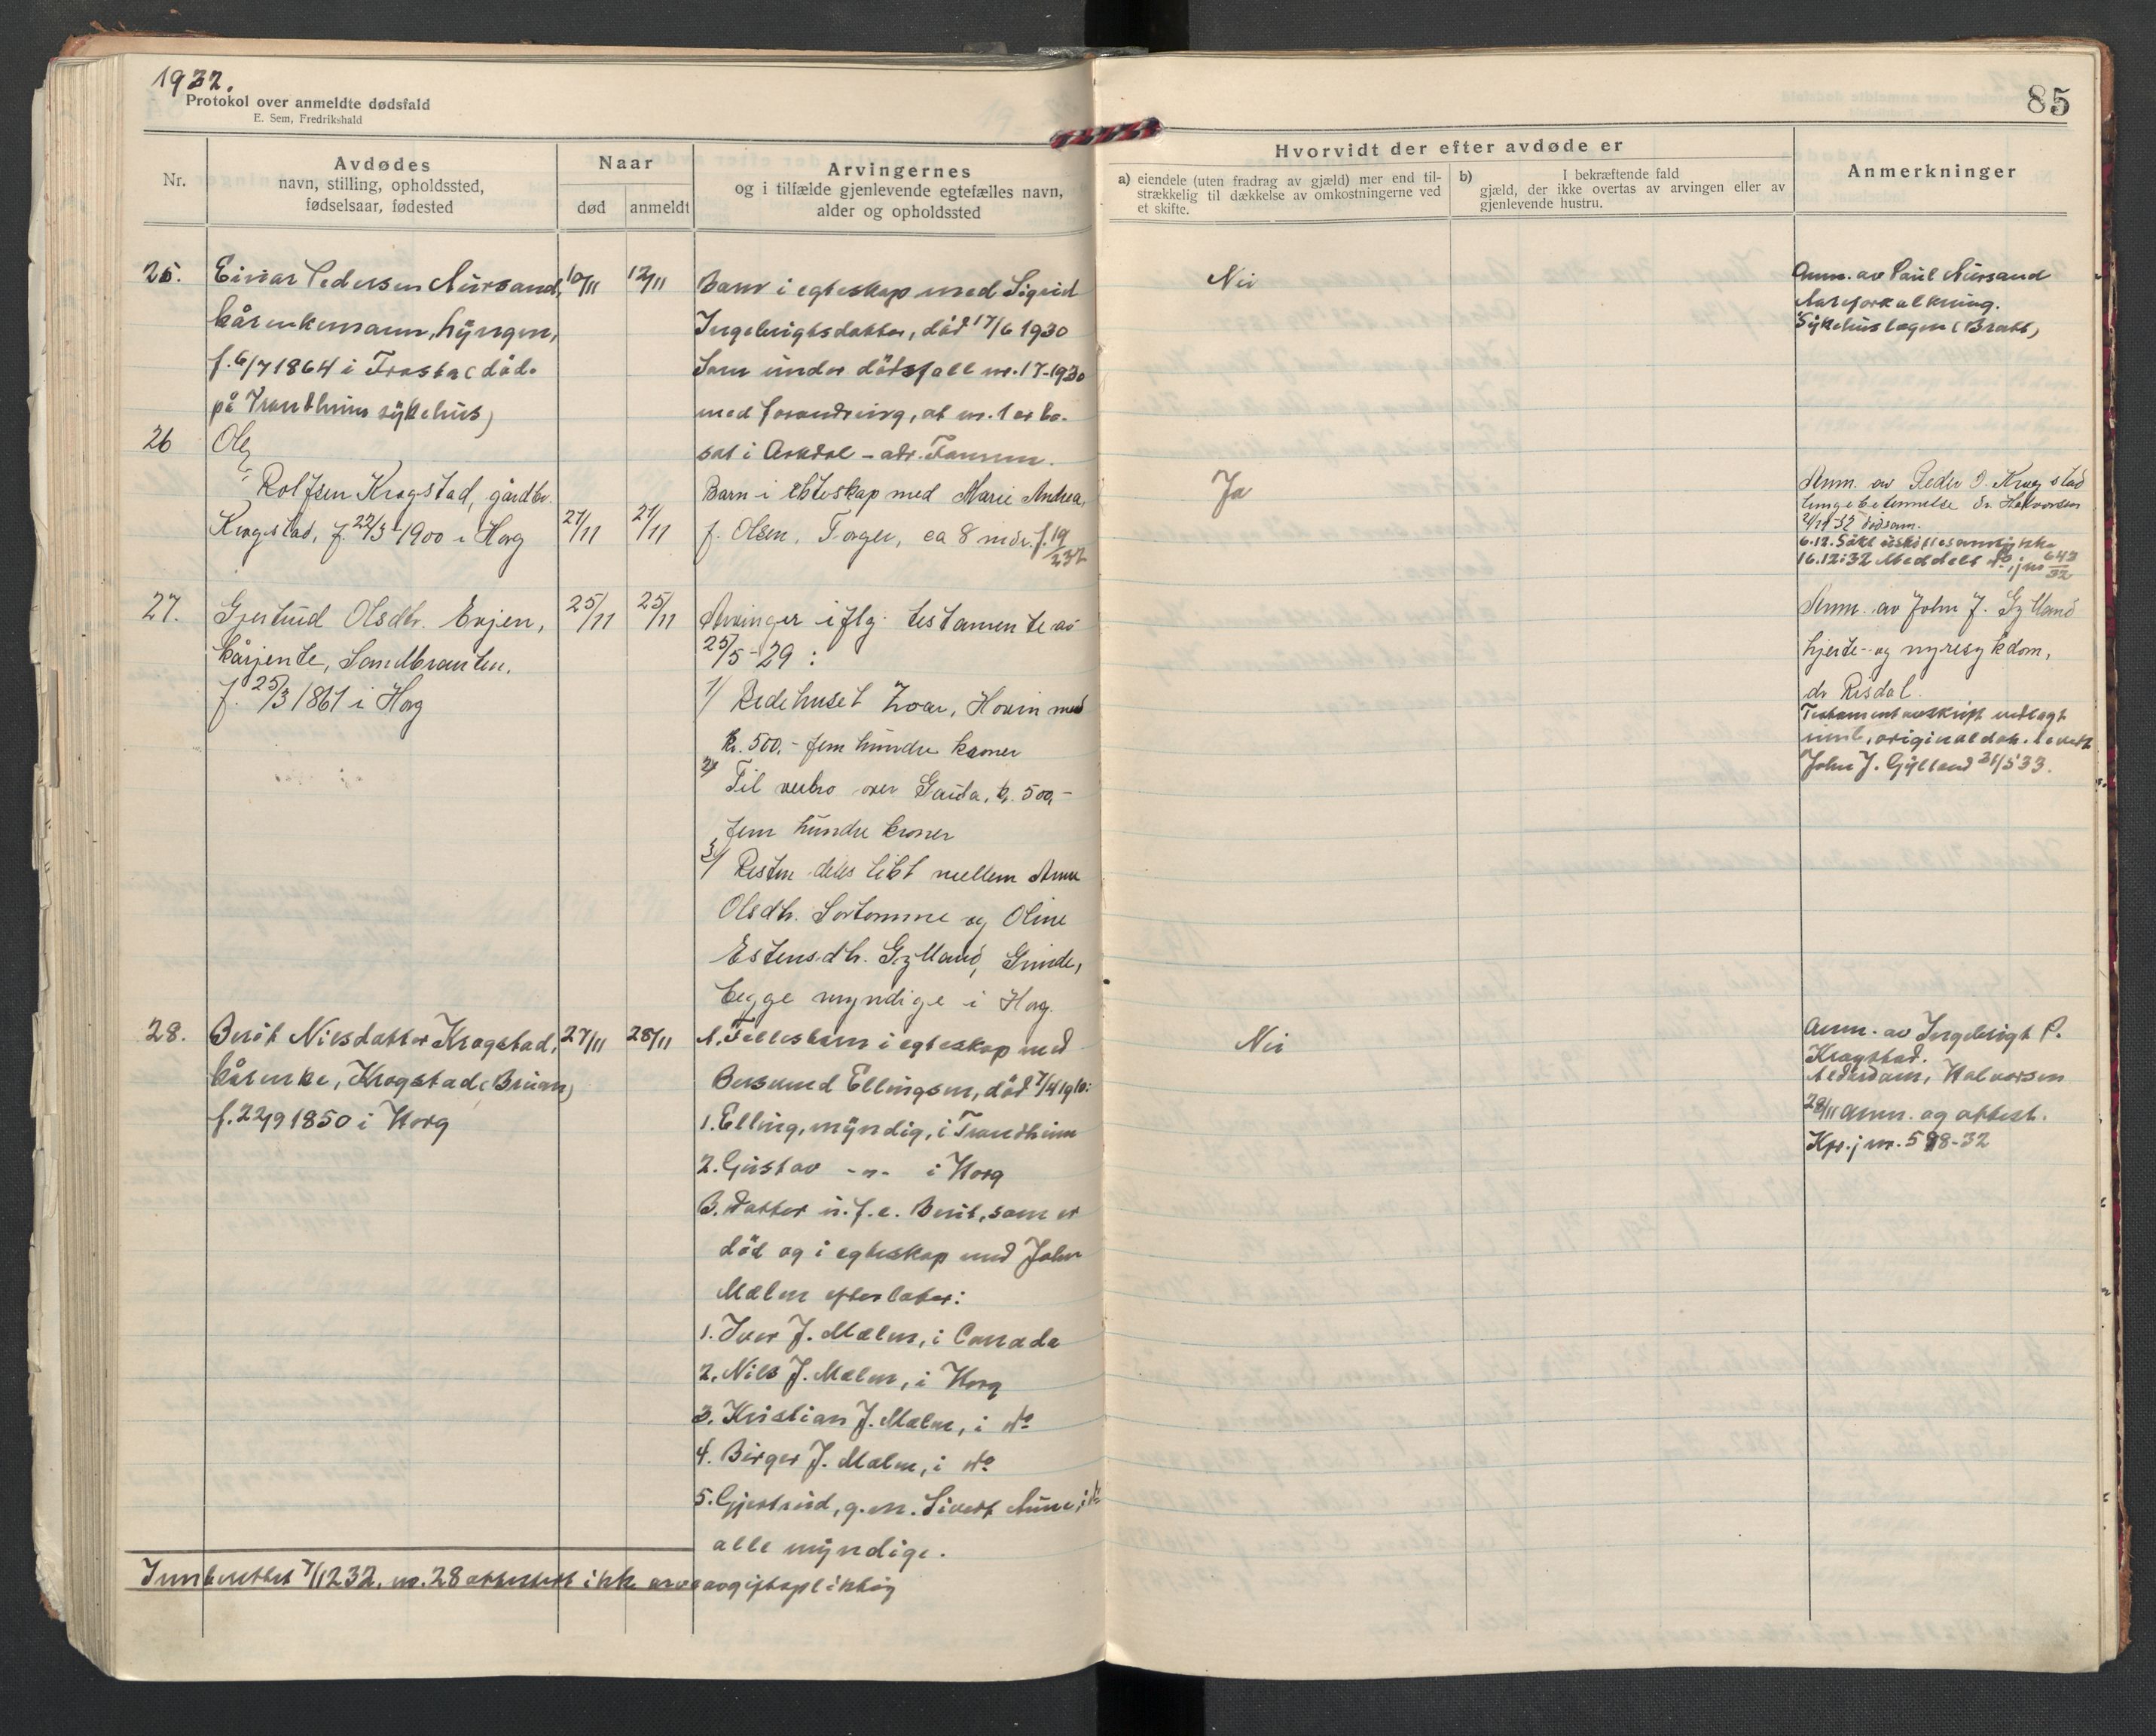 1932.
Protokol over anmeldte dødsfald
E. Sem, Fredrikshald
85
Nr.
Avdødes
navn, stilling, opholdssted,
fødselsaar, fødested
Naar
død
anmeldt
Arvingernes
og i tilfælde gjenlevende egtefælles navn,
alder og opholdssted
Hvorvidt der efter avdøde er
a) eiendele (uten fradrag av gjæld) mer end til-
strækkelig til dækkelse av omkostningerne ved
et skifte.
b) I bekræftende fald
gjæld, der ikke overtas av arvingen eller av
gjenlevende hustru.
Anmerkninger
25.
Einar Pedersen Aursand,
kårenkemann, Lyngen,
f. 6/7 1864 i Frosta (død
på Trondheim sykehus)
10/11
12/11
Barn i egteskap med Sigrid
Ingebrigtsdatter, död 17/6 1930
Som under dödsfall nr. 17-1930
med forandring, at nr. 1 er bo-
sat i Orkdal - adr. Fannrem.
Nei
Anm. av Paul Aursand
Åreforkalkning.
Sykehuslægen (Bratt)
26
Ole
Rolfsen Krogstad, gårdbr.
Krogstad, f. 22/3-1900 i Horg
27/11
27/11
Barn i ekteskap med Marie Andrea,
f. Olsen, Torger, ca 8 mdr. f. 19/2 32
Ja
Anm. av Peder O. Krogstad
lungebetennelse dr. Halvorsen
2/12-32 dødsanm.
6.12. Søkt uskiftesamtykke
16.12.32 Meddelt do, jnr 643/32
27.
Gjertrud Olsdtr. Evjen,
kårjente, Sandbrauten,
f. 25/3 1861 i Horg
25/11
25/11
Arvinger iflg. testamente av
25/5-29 :
1/ Bedehuset Zoar, Hovin med
kr. 500,- fem hundre kroner
2/ Til veibro over Gaula, kr. 500,-
fem hundre kroner
3/ Resten deles likt mellem Anne
Olsdtr. Sortomme og Oline
Estensdtr. Gylland, Grinde,
begge myndige i Horg.
Anm. av John J. Gylland
hjerte- og nyresykdom,
dr Risdal.
Testamentavskrift vedlagt
innb., originaldok. levert
John J. Gylland 31/5 33.
28.
Berit Nilsdatter Krogstad,
kårenke, Krogstad (Bruan)
f. 22/9 1850 i Horg
27/11
28/11
A. Fellesbarn i egteskap med
Bersvend Ellingsen, död 7/4 1910:
1. Elling, myndig, i Trondheim
2. Gustav -"- i Horg
B. Datter u.f.e. Berit, som er
död og i egteskap med John
Malm efterlater:
1. Iver J. Malm, i Canada
2. Nils J. Malm, i Horg
3. Kristian J. Malm, i do
4. Birger J. Malm, i do
5. Gjertrud, g.m. Sivert Aune, i do
alle myndige.
Nei
Anm. av Ingebrigt P.
Krogstad.
Alderdom, Halvorsen
28/11 anm. og attest.
Kps. jnr. 598-32
Innberettet 7/12 32, nr. 28 attestert ikke arveavgiftspliktig